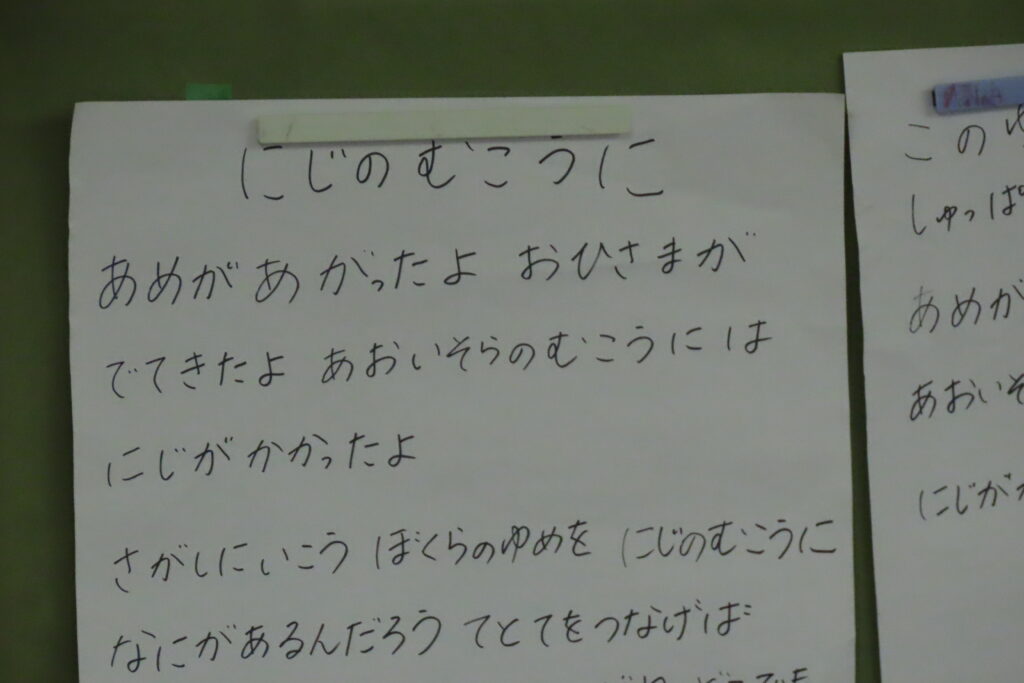 にじのむこうに
あめがあがったよ おひさまが
でてきたよ あおいそらのむこうには
にじがかかったよ
さがしにいこう ぼくらのゆめを にじのむこうに
なにがあるんだろう てとてをつなげば
この
しゅっぱ
あめが
あおいそ
にじが